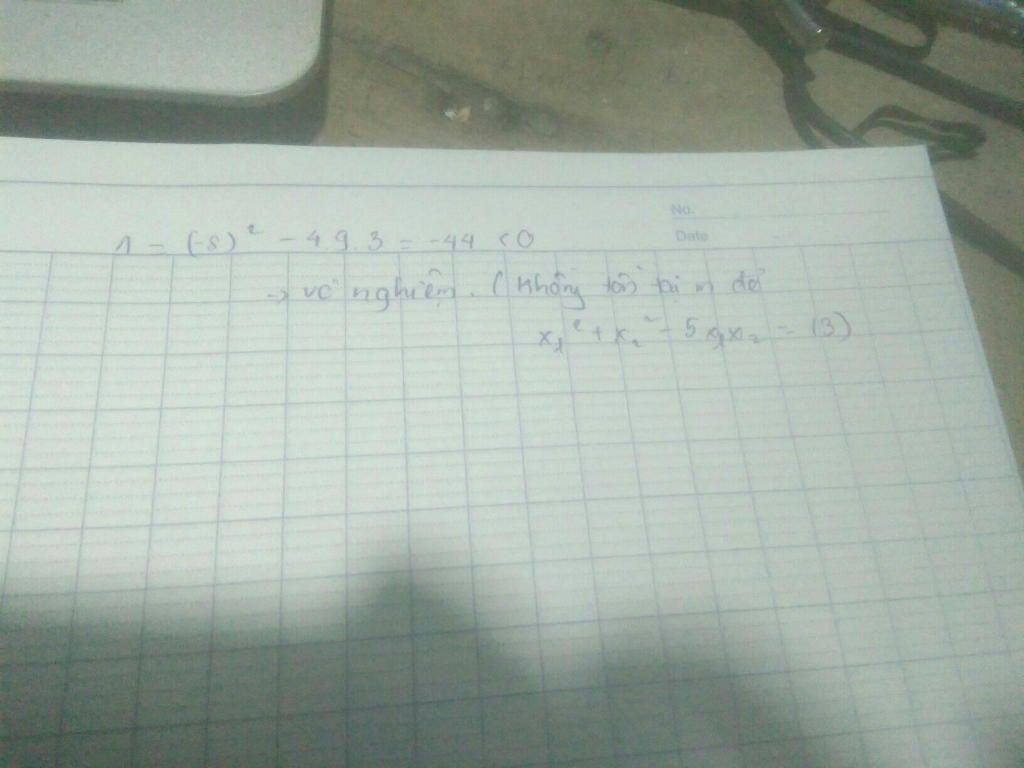 No.
Date
Δ = (-8)² - 4.9.3 = -44 < 0
→ vô nghiệm. (Không tồn tại m để
x₁² + x₂² - 5x₁x₂ = (3)